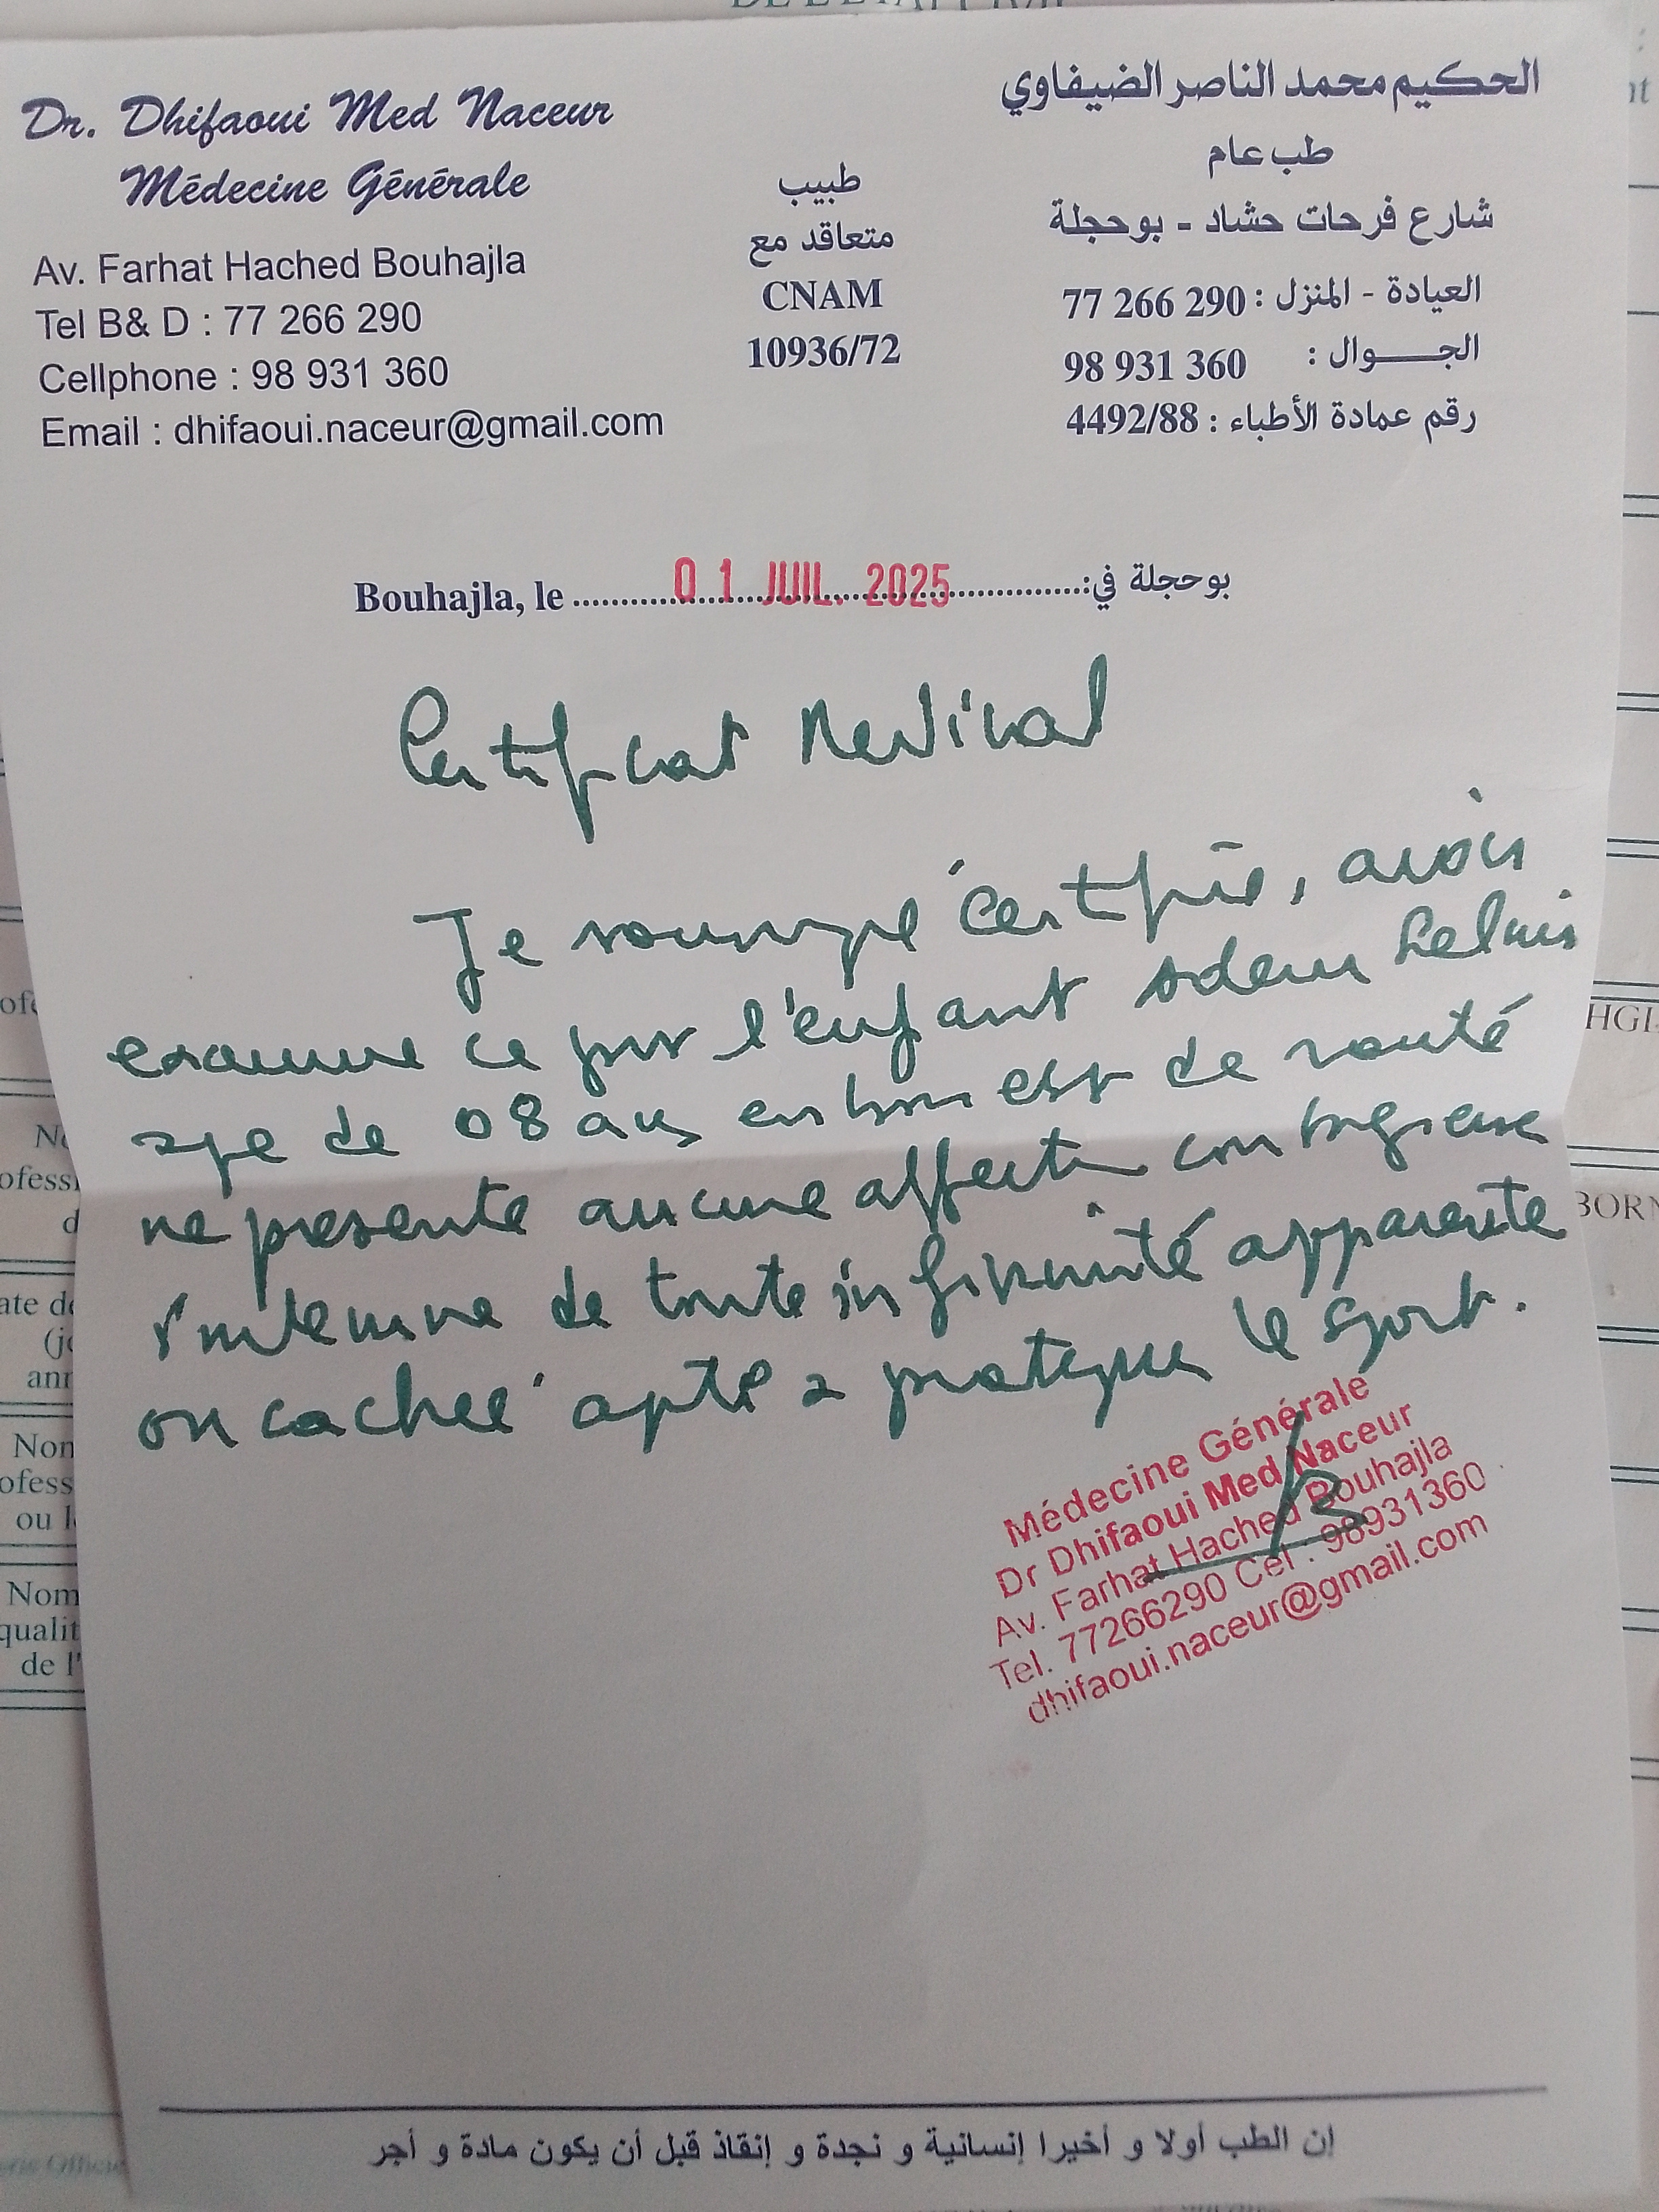 Dr. Dhifaoui Med Naceur
Médecine Générale
Av. Farhat Hached Bouhajla
Tel B& D : 77 266 290
Cellphone : 98 931 360
Email : dhifaoui.naceur@gmail.com
طبيب
متعاقد مع
CNAM
10936/72
الحكيم محمد الناصر الضيفاوي
طب عام
شارع فرحات حشاد - بوحجلة
العيادة - المنزل : 77 266 290
الجـــــوال : 98 931 360
رقم عمادة الأطباء : 4492/88
Bouhajla, le 01 JUIL. 2025 بوحجلة في:
Certificat Medical
Je soussigné certifie, avoir
examine ce jour l'enfant Adem
age de 08 ans en bon est de santé
ne presente aucune affection contagieuse
et indemne de toute infirmité apparente
ou cachée apte a pratiquer le sport.
Médecine Générale
Dr Dhifaoui Med Naceur
Av. Farhat Hached Bouhajla
Tel. 77266290 Cel : 98931360
dhifaoui.naceur@gmail.com
إن الطب أولا و أخيرا إنسانية و نجدة و إنقاذ قبل أن يكون مادة و أجر